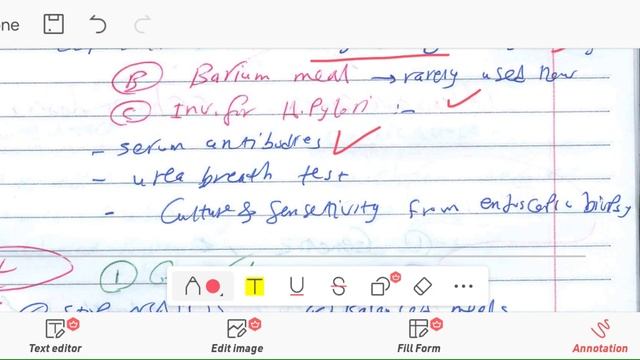 one
(B) Barium meal → rarely used now
(C) Inv. for H. Pylori :-
- serum antibodies
- urea breath test
- Culture & sensetivity from endoscopic biopsy
①
A T U S
② stop
meals
Text editor Edit image Fill Form Annotation